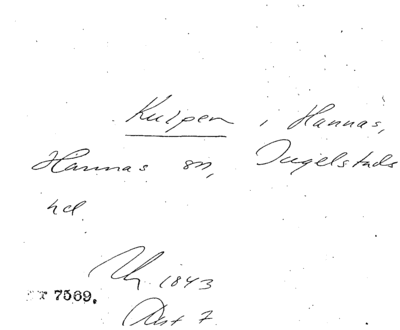 Kulpen i Hannas,
Hannas sn, Ingelstads
hd.
1843
7569.